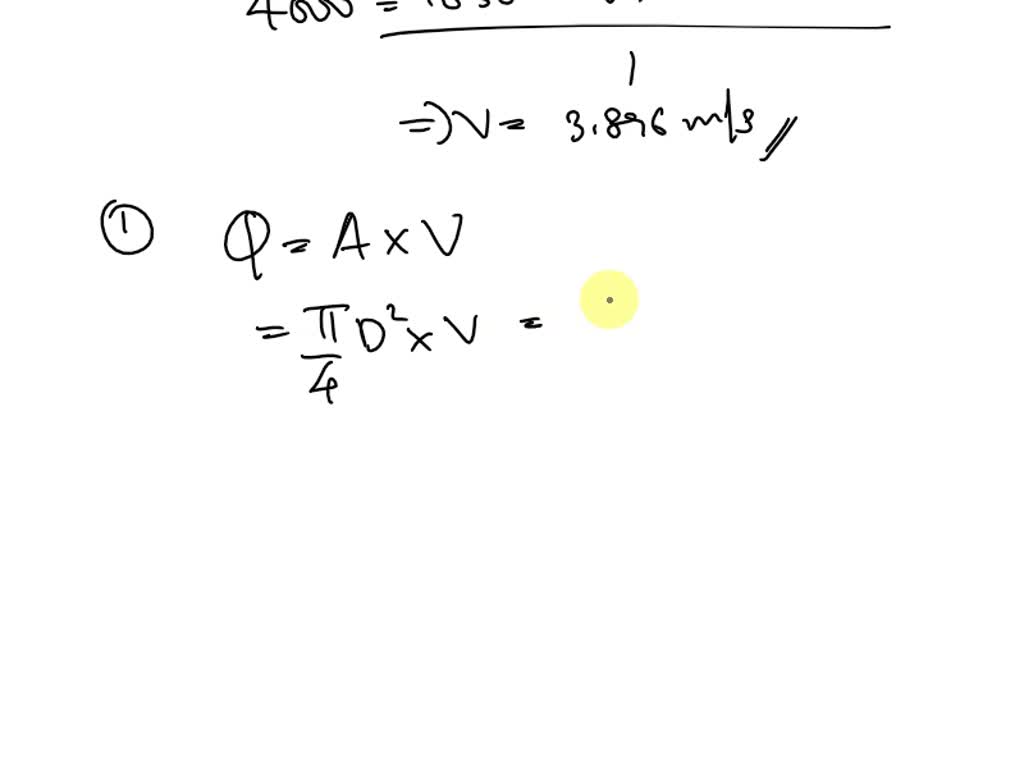 4000 =
1
=) V = 3.896 m/s //
① Q = A × V
= π/4 D² × V =